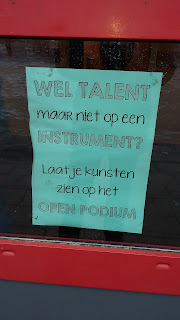 WEL TALENT
maar niet op een
INSTRUMENT?
Laatje kunsten
zien op het
OPEN PODIUM